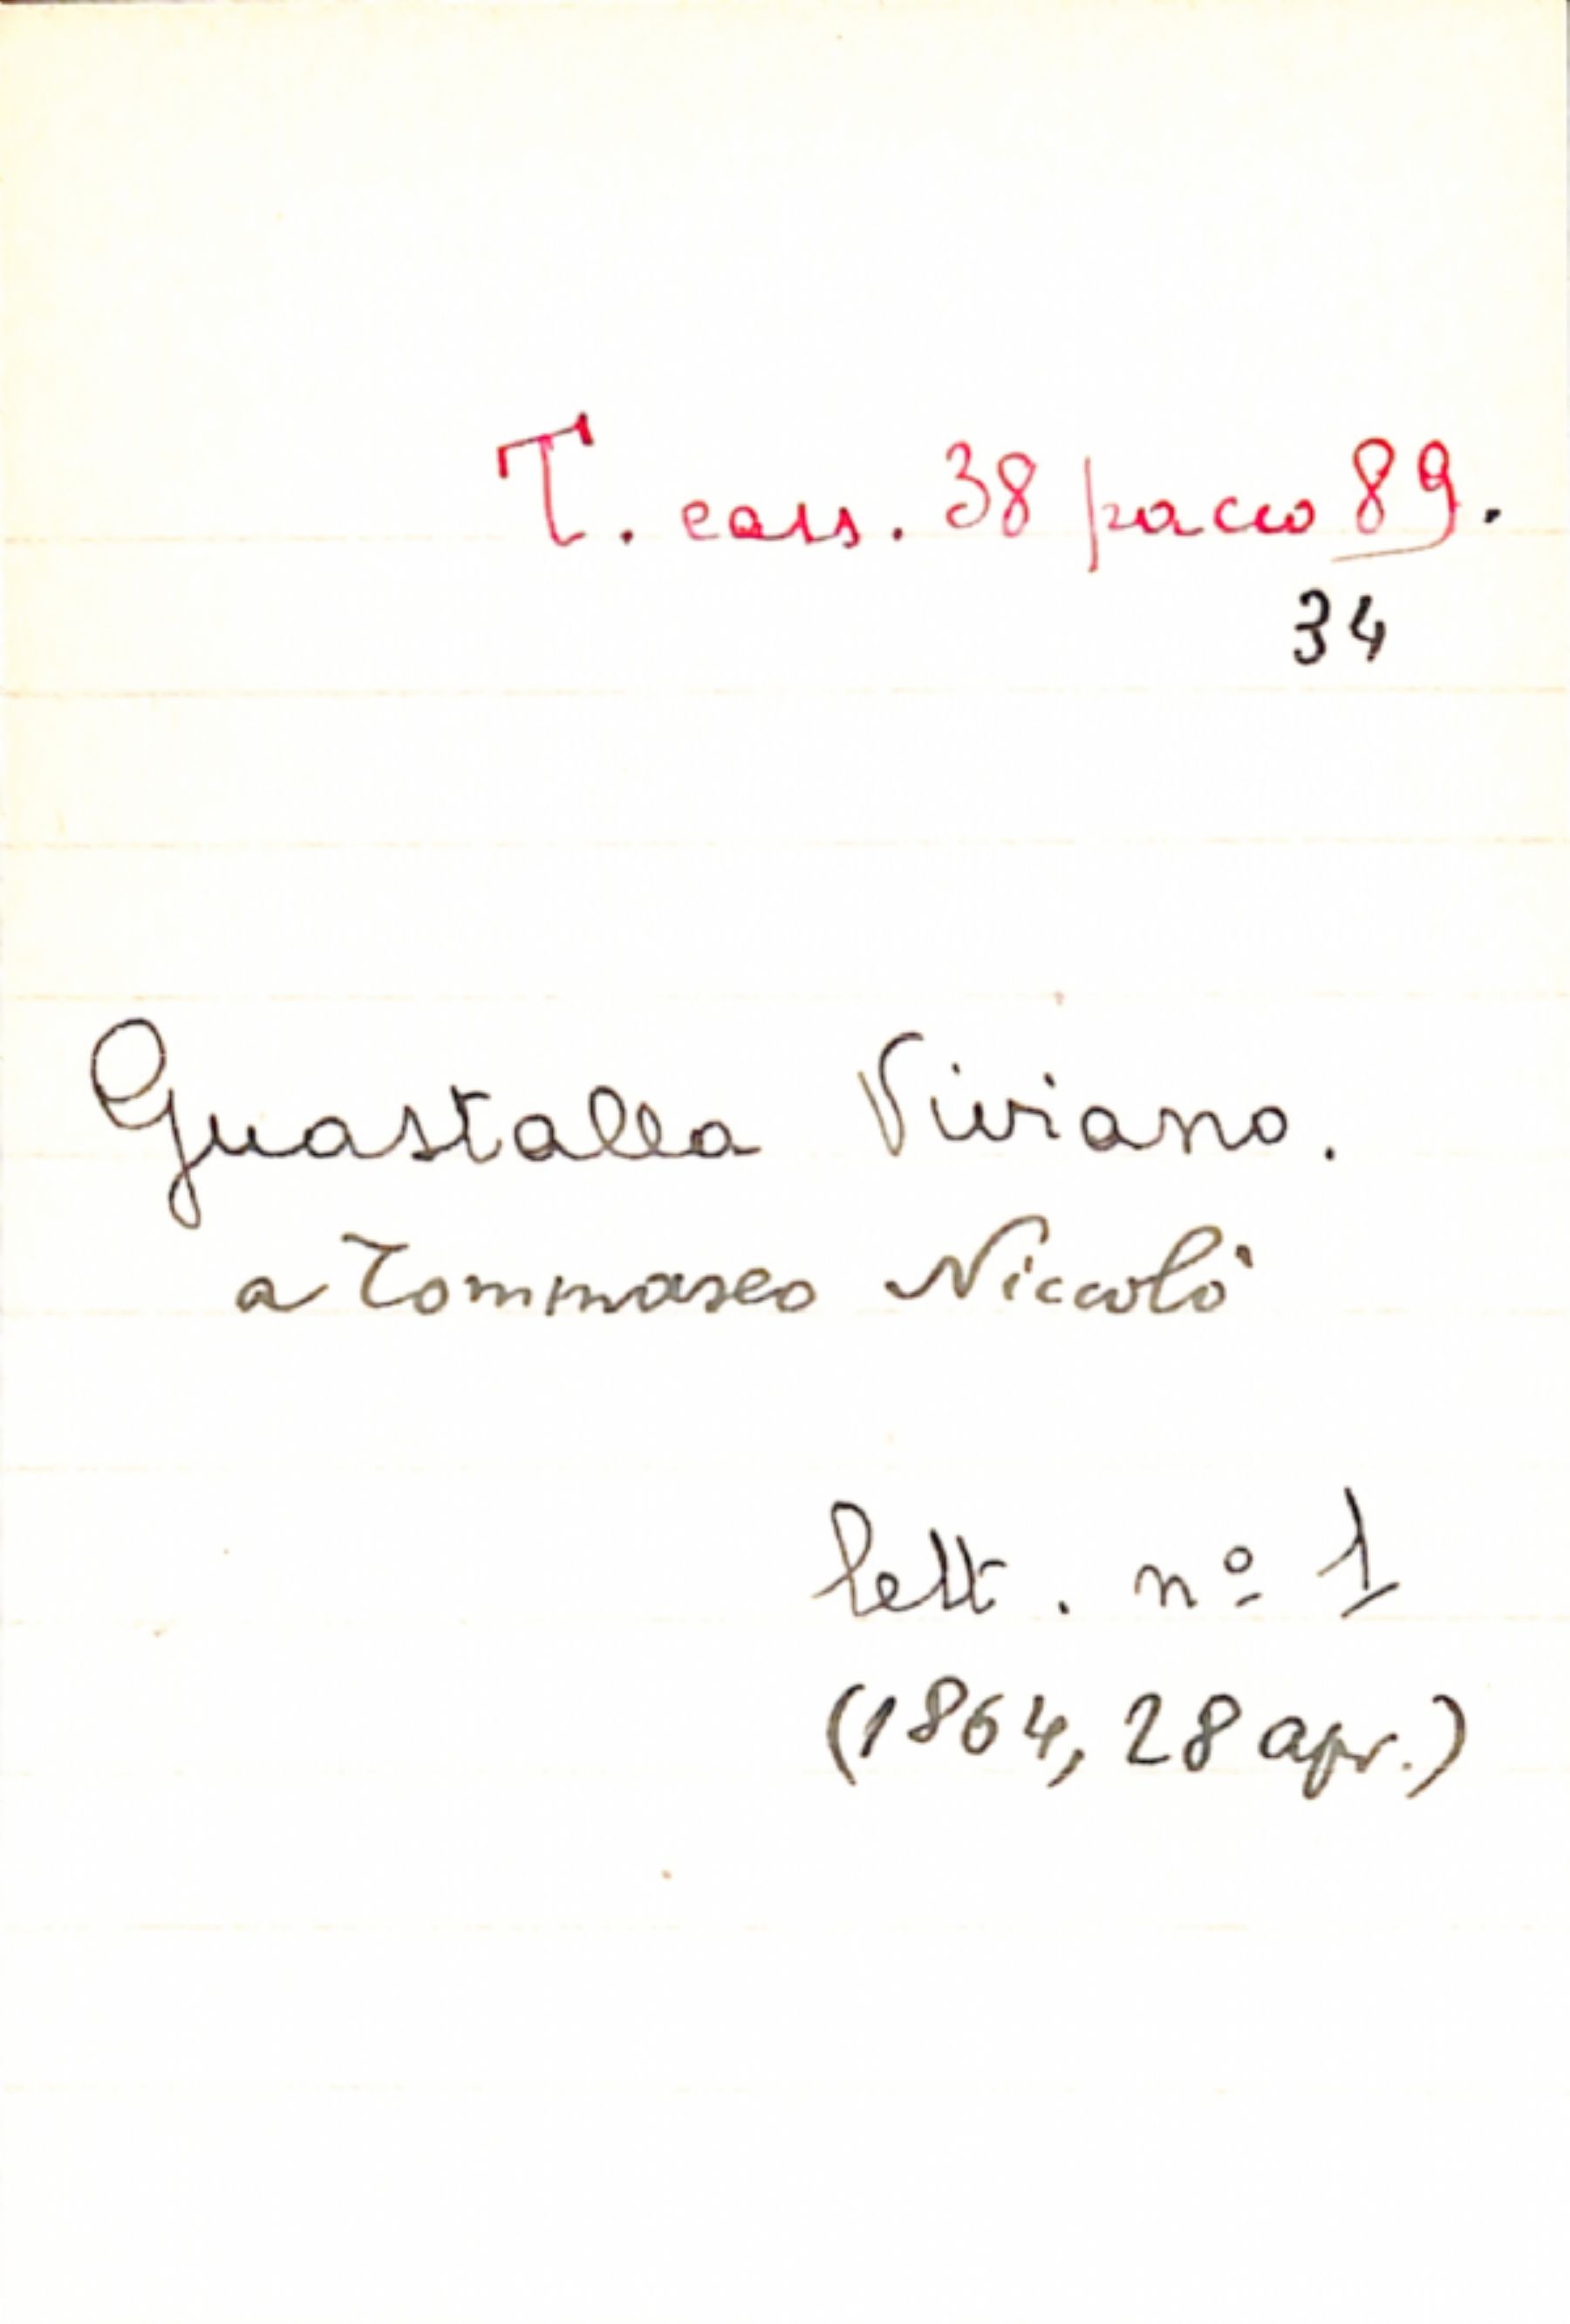 T. cass. 38 pacco 89.
34
Guastalla Viviano.
a Tommaseo Niccolò
lett. nº 1
(1864, 28 apr.)